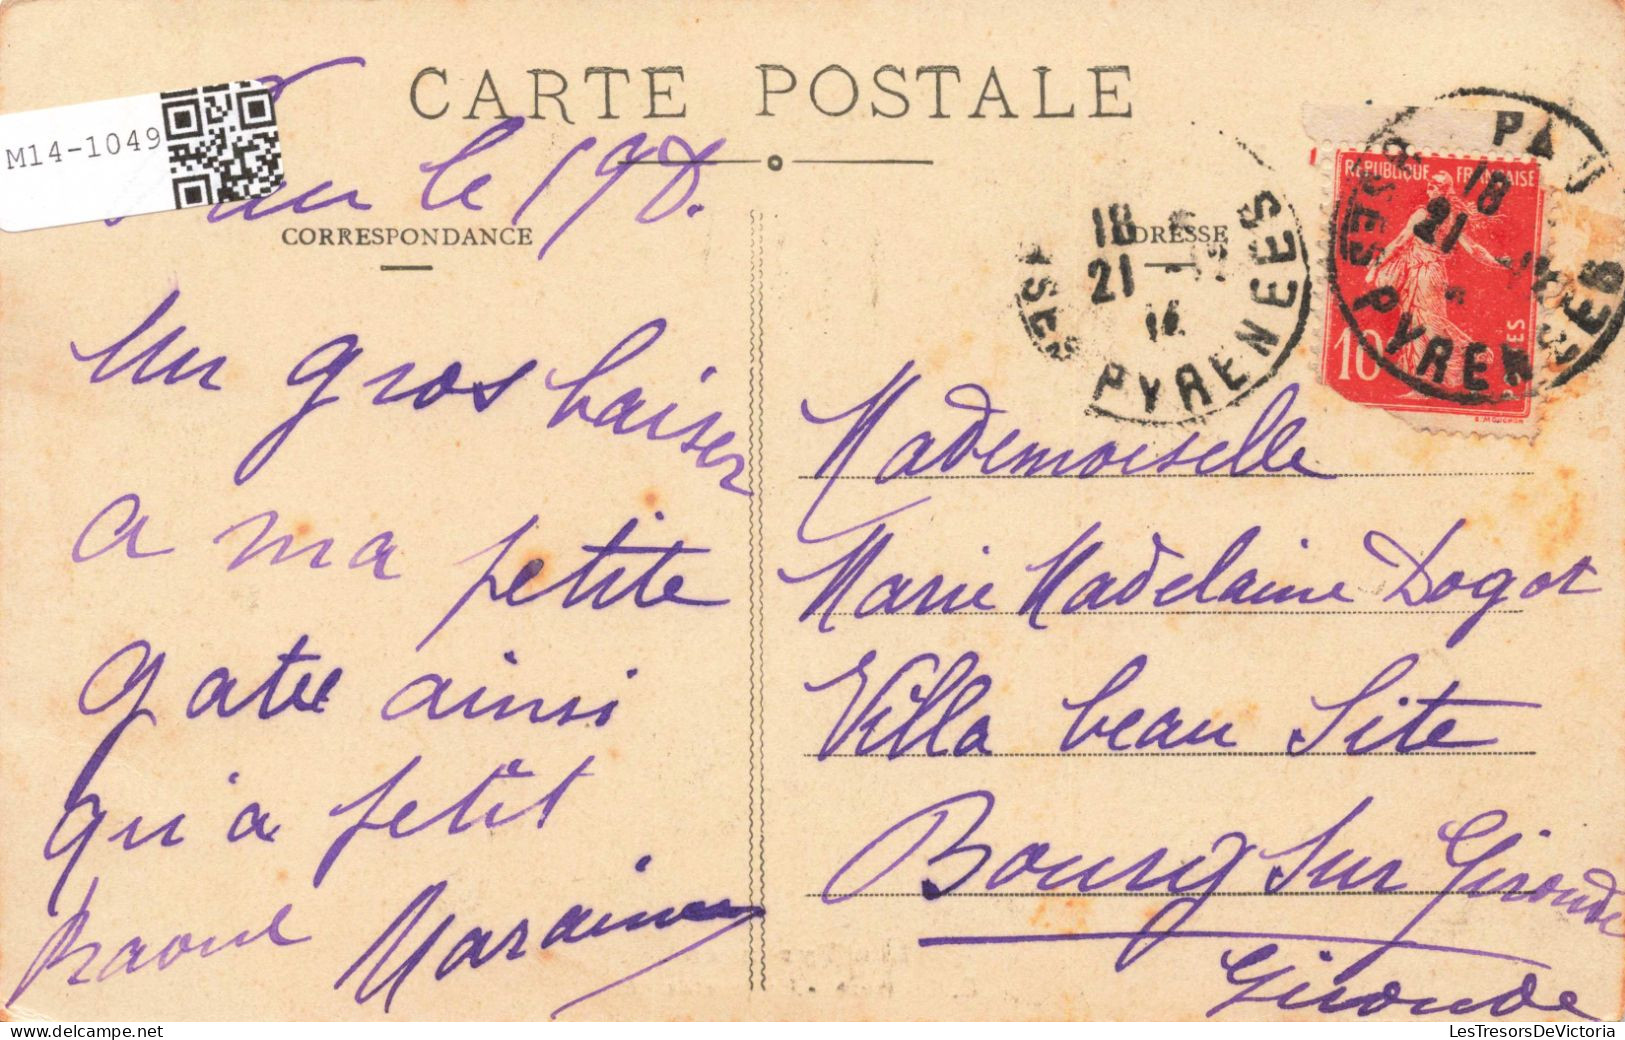 CARTE POSTALE
M14-1049
le 198.
CORRESPONDANCE
ADRESSE
Un gros baiser
a ma petite
gatée ainsi
qu'a petit
Raoul
Marraine
PAU
18
21
BSES PYRENEES
18
21
14
BSES PYRENEES
REPUBLIQUE FRANÇAISE
10
POSTES
E. MOUCHON
Mademoiselle
Marie Madelaine Dogot
Villa beau Site
Bourg Sur Gironde
Gironde
LesTresorsDeVictoria
www.delcampe.net